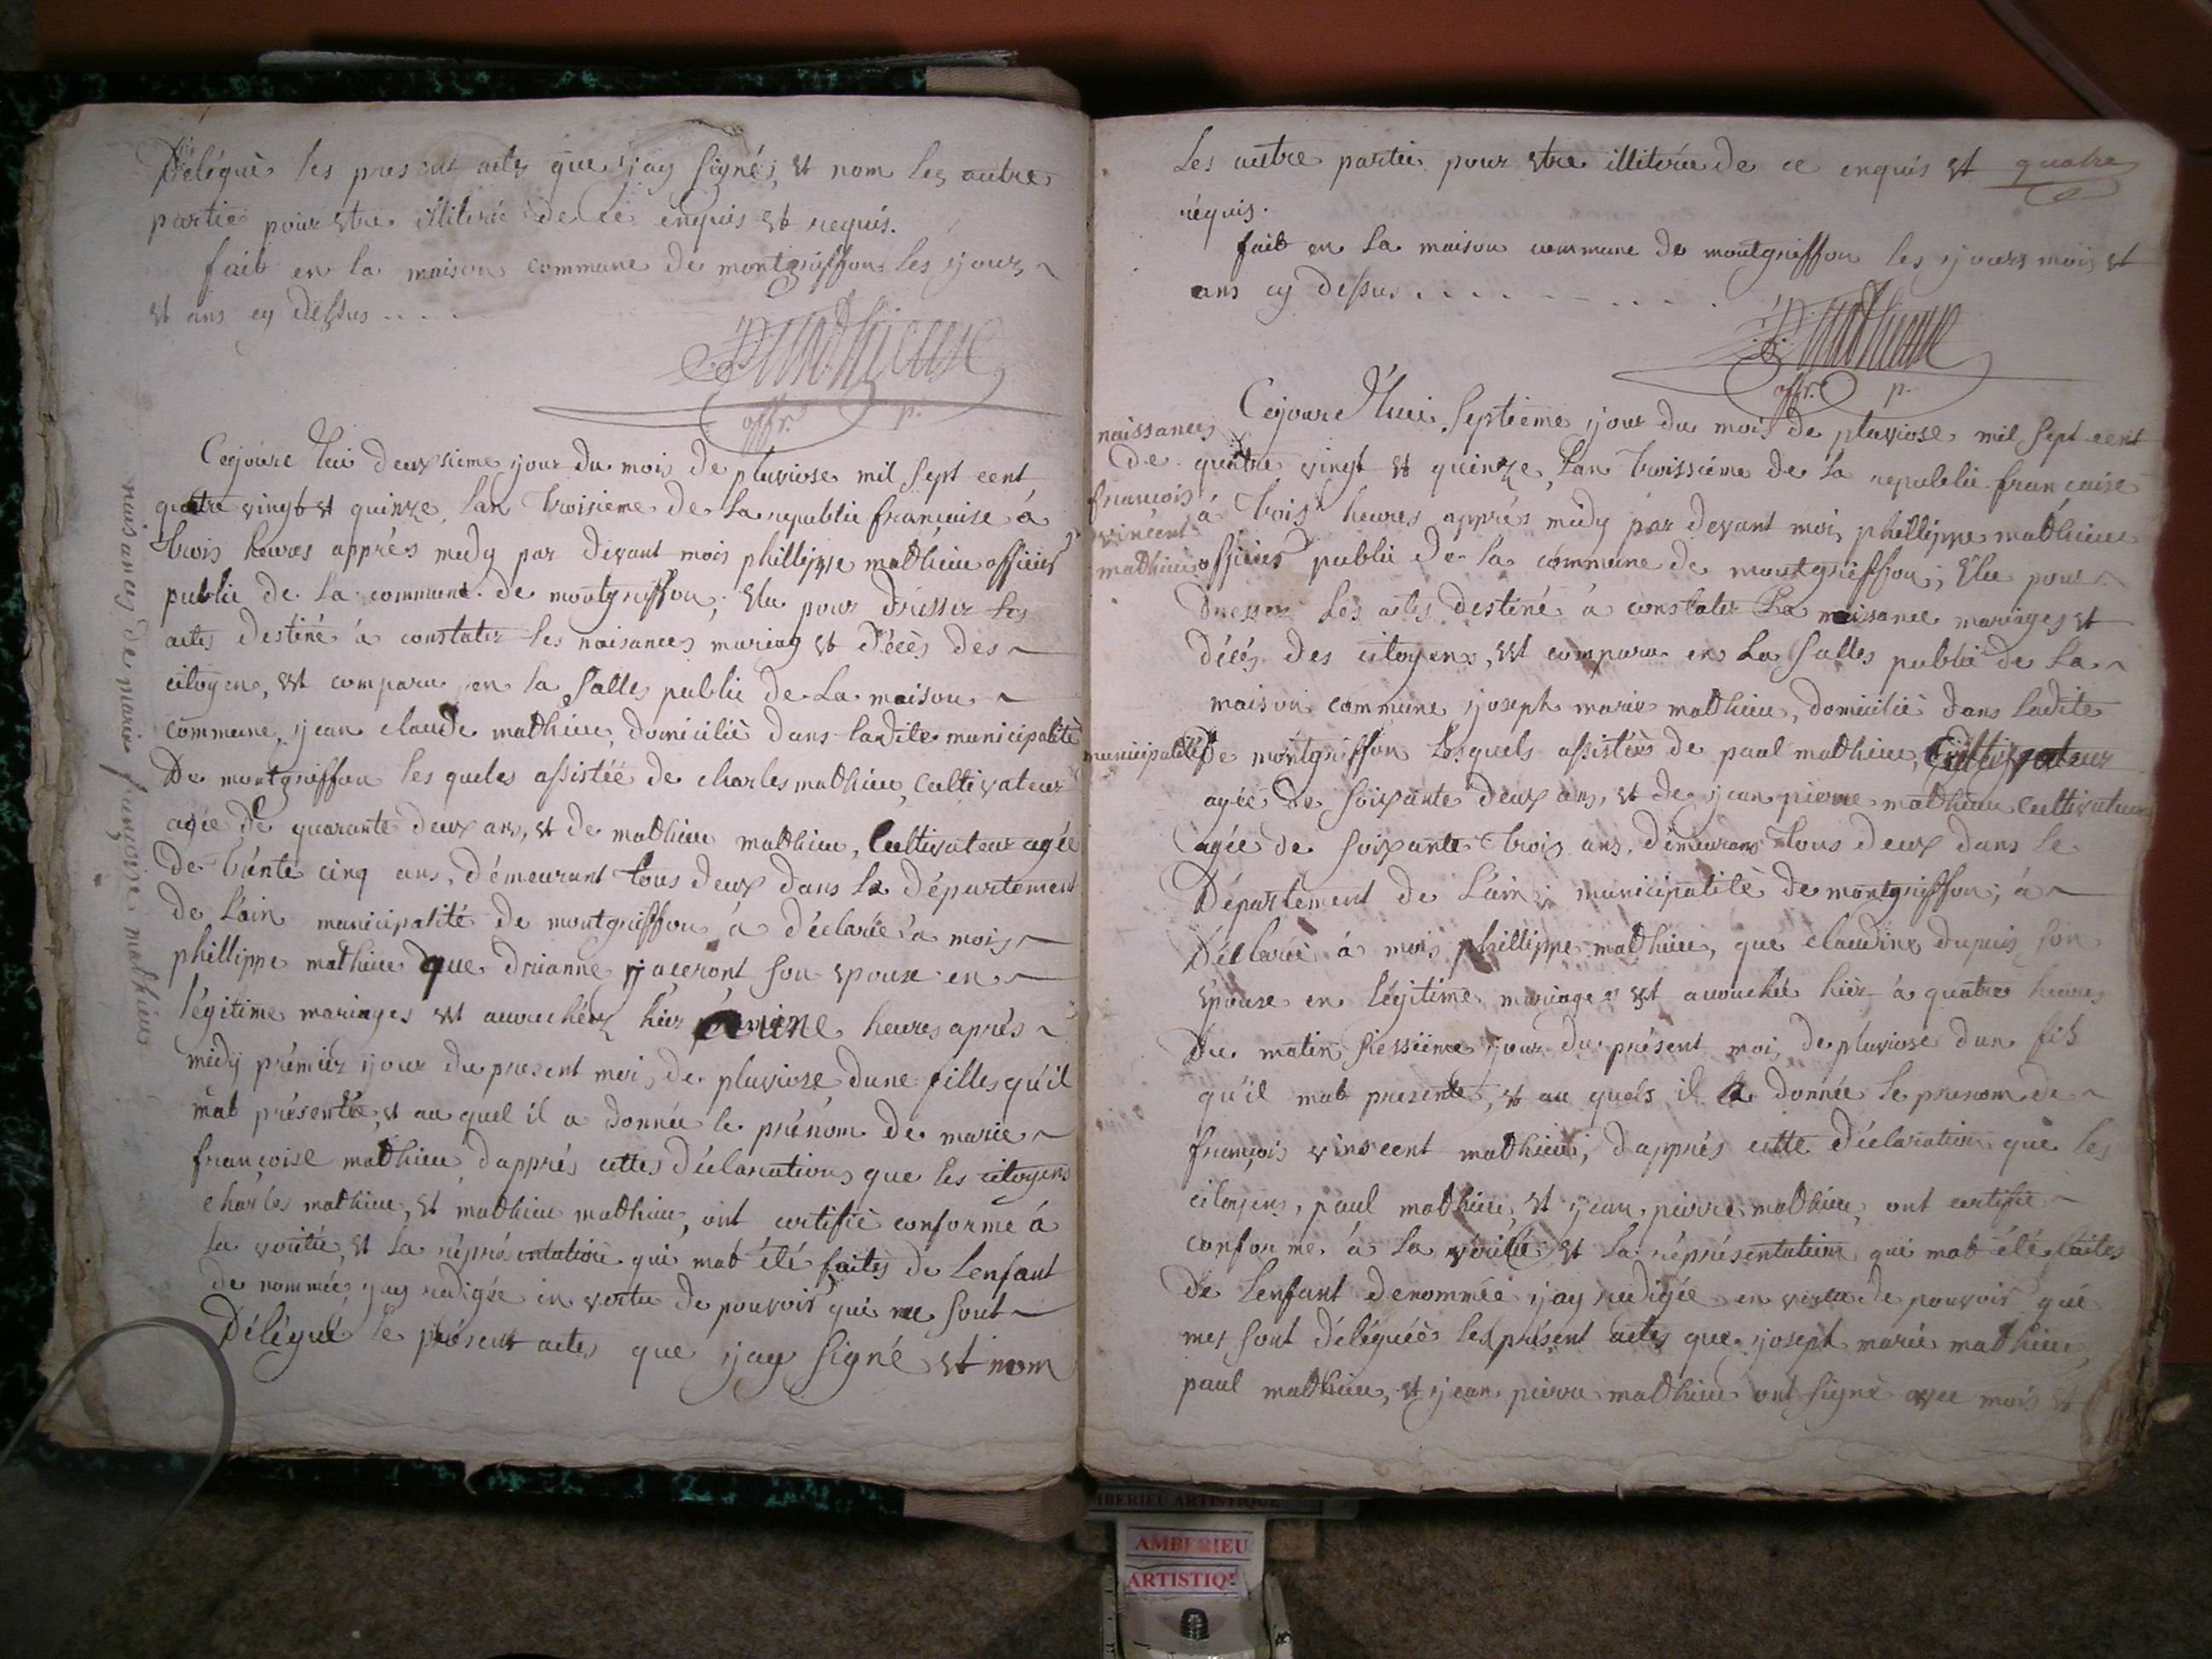 Délégué les present actes que j'ay signé, et nom les autre
partie pour etre illiterée de ce enquis et requis.
fait en la maison commune de montgriffon les jours
et ans cy dessus ....
PMathieu
offr. p.
naisances de marie françoise mathieu
Cejoure hui deuxsieme jour du mois de pluviose mil sept cent
quatre vingt et quinze, lan troisieme de la republic francaise à
trois heures apprés midy par devant mois phillippe mathieu officier
public de la commune de montgriffon; Elu pour dresser les
actes destiné à constater les naisances mariag et décès des
citoyen, est comparu en la salles public de la maison
commune, jean claude mathieu, domicilié dans ladite municipalité
De montgriffon les queles assistéé de charles mathieu, cultivateur
agée de quarante deux ans, et de mathieu mathieu, Cultivateur agée
de trente cinq ans, démeurant tous deux dans le département
de l'ain municipalité de montgriffon à déclarée à mois
phillippe mathieu que drianne jaceront son epouse en
légitime mariages est acouchée hier à une heures aprés
midy prémier jour du present moi, de pluviose, dune filles qu'il
mat présentée, et au quel il a donnée le prénom de marie
françoise mathieu dapprés cettes déclarations que les citoyens
charles mathieu, et mathieu mathieu, ont certifié conforme à
la veritée, et la réprésentation qui mat été faites de lenfant
de nommée jay redigée en vertu de pouvoir qui me sont
Délégué le présent actes que jay signé et nom
quatre
Les autre partie pour etre illiterée de ce enquis et
réquis.
fait en la maison commune de montgriffon les jours mois et
ans cy dessus ..........
PMathieu
offr. p.
naissances
De
françois
vincent
mathieu
Cejoure d'hui septieme jour du mois de pluviose mil sept cent
quatre vingt et quinze, lan troissiéme de la republic francaise
à trois heures apprés midy par devant moi, phillippe mathieu
officier public de la commune de montgriffon; Elu pour
dresser les actes destiné à constater La naisance mariages et
décés des citoyens, est comparu en la salles public de la
maison commune joseph marie mathieu, domicilié dans ladite
municipalité De montgriffon lesquels assistéés de paul mathieu, Cultivateur
agée de soixante deux ans, et de jean pierre mathieu cultivateur
agée de soixante trois ans, démeurans tous deux dans le
Département de l'ain, municipalité de montgriffon; à
Déclarée à mois phillippe mathieu, que claudine dupuis son
épouse en légitime mariages est acouchée hier à quatre heures
Du matin siessiéme jour du présent moi, de pluviose dun fils
qu'il mat presenté, et au quels il a donnée le prenom de
françois vinscent mathieu, dapprés cette déclaration que les
citoyens, paul mathieu, et jean pierre mathieu, ont certifié
conforme à la vérité et la réprésentation qui mat été faites
De lenfant denommée jay redigée en vertu de pouvoir qui
mes sont déléguéés les présent actes que joseph marie mathieu,
paul mathieu, et jean pierre mathieu ont signé avec mois et
AMBERIEU ARTISTIQUE
AMBERIEU
ARTISTIQ